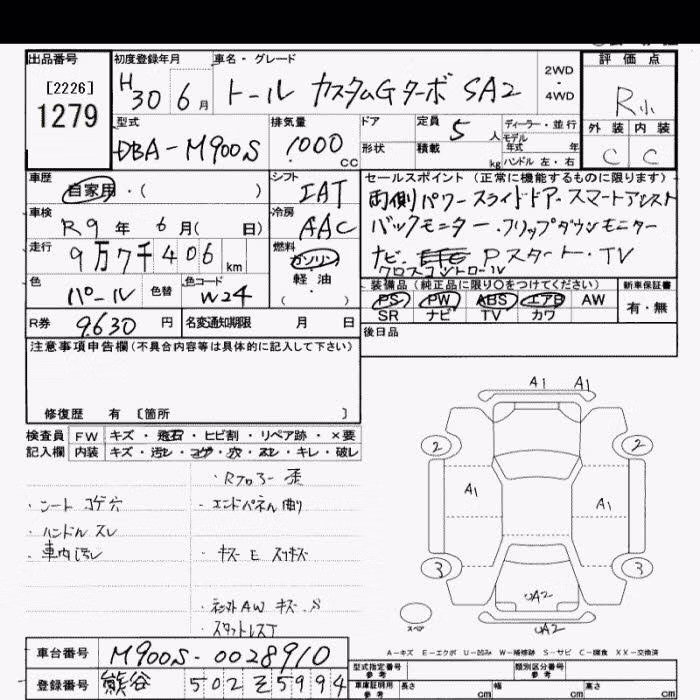 出品番号 初度登録年月 車名・グレード 評価点
[2226] H30 6月 トール カスタムGターボ SA2 2WD・4WD R小
1279
型式 排気量 ドア 定員 5人 ディーラー・並行 外装 内装
DBA-M900S 1000cc 形状 積載 kg モデル年式 年 ハンドル 左・右 C C
車歴 自家用・( ) シフト IAT セールスポイント(正常に機能するものに限ります)
車検 R9年 6月( 日) 冷房 AAC 両側パワースライドドア・スマートアシスト
バックモニター・フリップダウンモニター
走行 9万7千406km 燃料 ガソリン 軽油 ( ) ナビ・Pスタート・TV
クロスコントロール
色 パール 色替 色コード W24 装備品(純正品に限り〇をつけてください) 新車保証書
PS PW ABS エアB AW 有・無
R券 9630円 名変通知期限 月 日 SR ナビ TV カワ
注意事項申告欄(不具合内容等は具体的に記入して下さい) 後日品
修復歴 有〔箇所 〕
検査員 FW キズ・飛石・ヒビ割・リペア跡・×要
記入欄 内装 キズ・汚レ・コゲ・穴・スレ・キレ・破レ
・シート コゲ穴
・ハンドル スレ
・車内汚レ
・Rフロアー 歪
・エンドパネル曲り
・キズ E スリキズ
・スタットレスT
A1 A1
2 2
A1 A1
3 3
UA2
スペア UA2
A-キズ E-エクボ U-凹み W-補修跡 S-サビ C-腐食 XX-交換済
車台番号 M900S-0028910
型式指定番号 参考 類別区分番号 参考
登録番号 熊谷 502 そ 5994 車庫証明用 参考 長さ cm 幅 cm 高さ cm